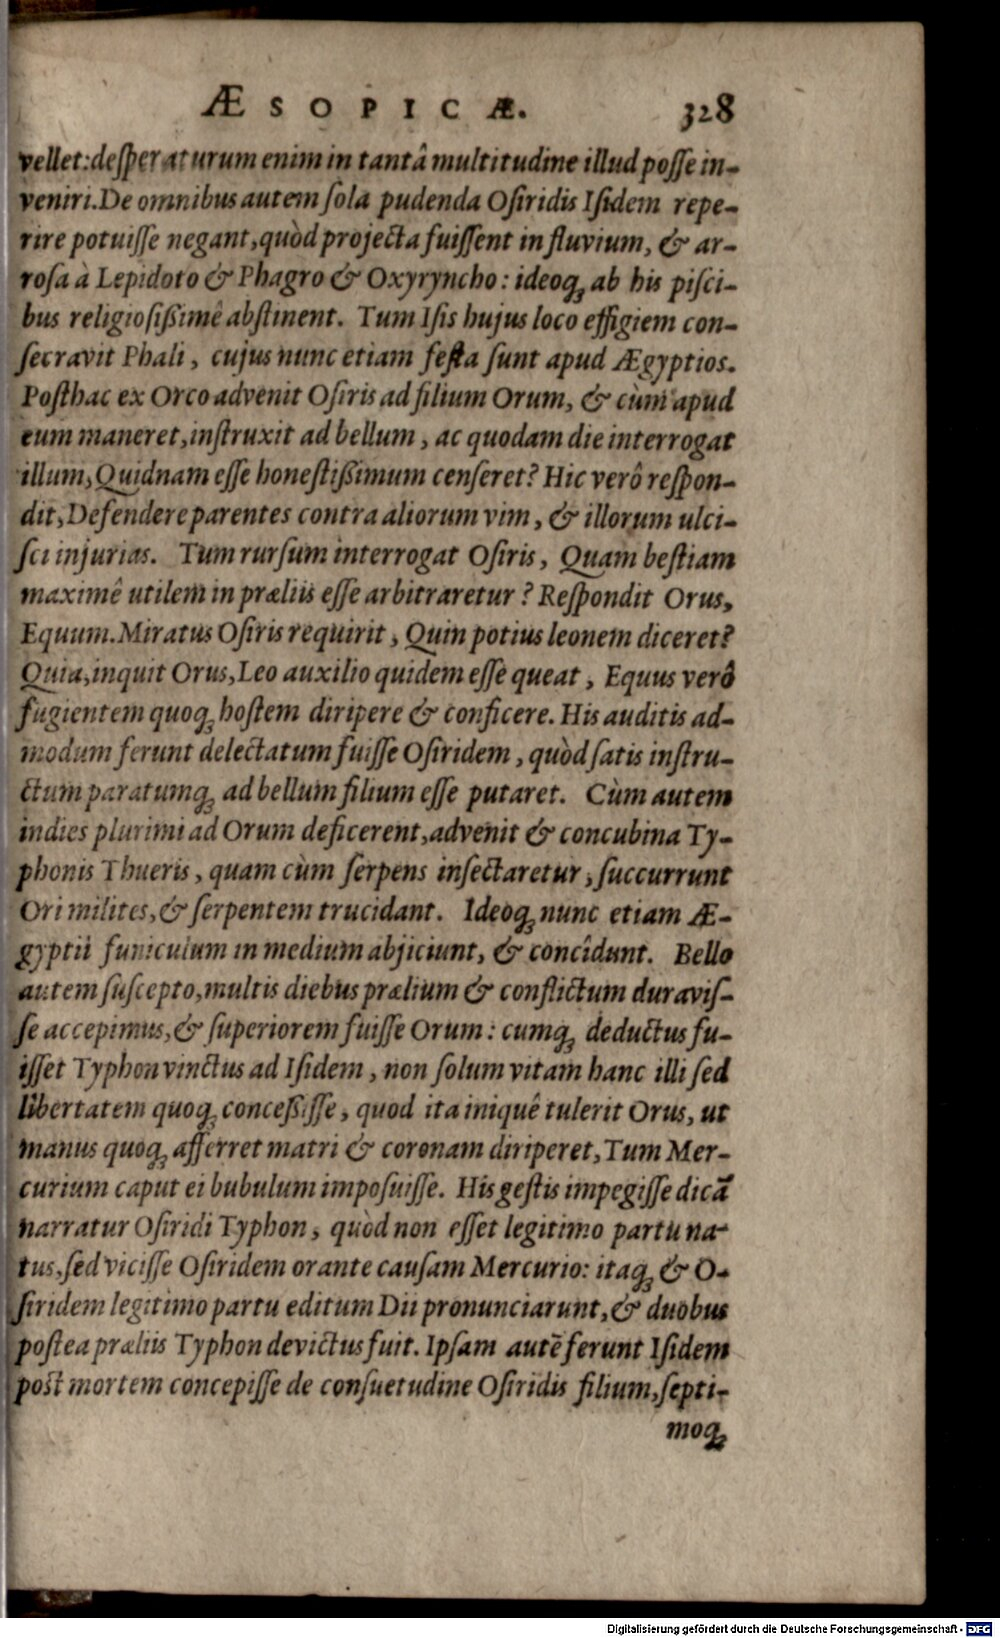 ÆSOPICÆ. 328
vellet: deſperaturum enim in tantâ multitudine illud poſſe in-
veniri. De omnibus autem ſola pudenda Oſiridis Iſidem repe-
rire potuiſſe negant, quòd projecta fuiſſent in fluvium, & ar-
roſa à Lepidoto & Phagro & Oxyryncho: ideoq́ꝫ ab his piſci-
bus religioſißimê abſtinent. Tum Iſis hujus loco effigiem con-
ſecravit Phali, cujus nunc etiam feſta ſunt apud Ægyptios.
Poſthac ex Orco advenit Oſiris ad filium Orum, & cùm apud
eum maneret, inſtruxit ad bellum, ac quodam die interrogat
illum, Quidnam eſſe honeſtißimum cenſeret? Hic verô reſpon-
dit, Defendere parentes contra aliorum vim, & illorum ulci-
ſci injurias. Tum rurſum interrogat Oſiris, Quam beſtiam
maximê utilem in præliis eſſe arbitraretur? Reſpondit Orus,
Equum. Miratus Oſiris requirit, Quin potius leonem diceret?
Quia, inquit Orus, Leo auxilio quidem eſſe queat, Equus verô
fugientem quoqꝫ hoſtem diripere & conficere. His auditis ad-
modum ferunt delectatum fuiſſe Oſiridem, quòd ſatis inſtru-
ctum paratumqꝫ ad bellum filium eſſe putaret. Cùm autem
indies plurimi ad Orum deficerent, advenit & concubina Ty-
phonis Thueris, quam cùm ſerpens inſectaretur, ſuccurrunt
Ori milites, & ſerpentem trucidant. Ideoqꝫ nunc etiam Æ-
gyptii funiculum in medium abjiciunt, & concîdunt. Bello
autem ſuſcepto, multis diebus prælium & conflictum duraviſ-
ſe accepimus, & ſuperiorem fuiſſe Orum: cumqꝫ deductus fu-
iſſet Typhon vinctus ad Iſidem, non ſolum vitam hanc illi ſed
libertatem quoqꝫ conceßiſſe, quod ita iniquê tulerit Orus, ut
manus quoqꝫ afferret matri & coronam diriperet, Tum Mer-
curium caput ei bubulum impoſuiſſe. His geſtis impegiſſe dicã
narratur Oſiridi Typhon, quòd non eſſet legitimo partu na-
tus, ſed viciſſe Oſiridem orante cauſam Mercurio: itaqꝫ & O-
ſiridem legitimo partu editum Dii pronunciarunt, & duobus
poſtea præliis Typhon devictus fuit. Ipſam autẽ ferunt Iſidem
poſt mortem concepiſſe de conſuetudine Oſiridis filium, ſepti-
moqꝫ
Digitalisierung gefördert durch die Deutsche Forschungsgemeinschaft - DFG